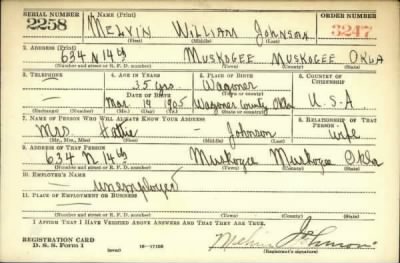 SERIAL NUMBER 1. NAME (Print) ORDER NUMBER
2258 MELVIN WILLIAM JOHNSON 3247
(First) (Middle) (Last)
2. ADDRESS (Print)
634 N 14th MUSKOGEE MUSKOGEE OKLA
(Number and street or R. F. D. number) (Town) (County) (State)
3. TELEPHONE 4. AGE IN YEARS 5. PLACE OF BIRTH 6. COUNTRY OF CITIZENSHIP
35 yrs. Wagoner
DATE OF BIRTH (Town or county)
Mar 19 1905 Wagoner County Okla U.S.A.
(Exchange) (Number) (Mo.) (Day) (Yr.) (State or country)
7. NAME OF PERSON WHO WILL ALWAYS KNOW YOUR ADDRESS 8. RELATIONSHIP OF THAT PERSON
Mrs Hattie - Johnson wife
(Mr., Mrs., Miss) (First) (Middle) (Last)
9. ADDRESS OF THAT PERSON
634 N 14th Muskogee Muskogee Okla
(Number and street or R. F. D. number) (Town) (County) (State)
10. EMPLOYER'S NAME
unemployed
11. PLACE OF EMPLOYMENT OR BUSINESS
(Number and street or R. F. D. number) (Town) (County) (State)
I AFFIRM THAT I HAVE VERIFIED ABOVE ANSWERS AND THAT THEY ARE TRUE.
REGISTRATION CARD
D. S. S. Form 1 (over) 16-17105 Melvin Johnson
(Registrant's signature)